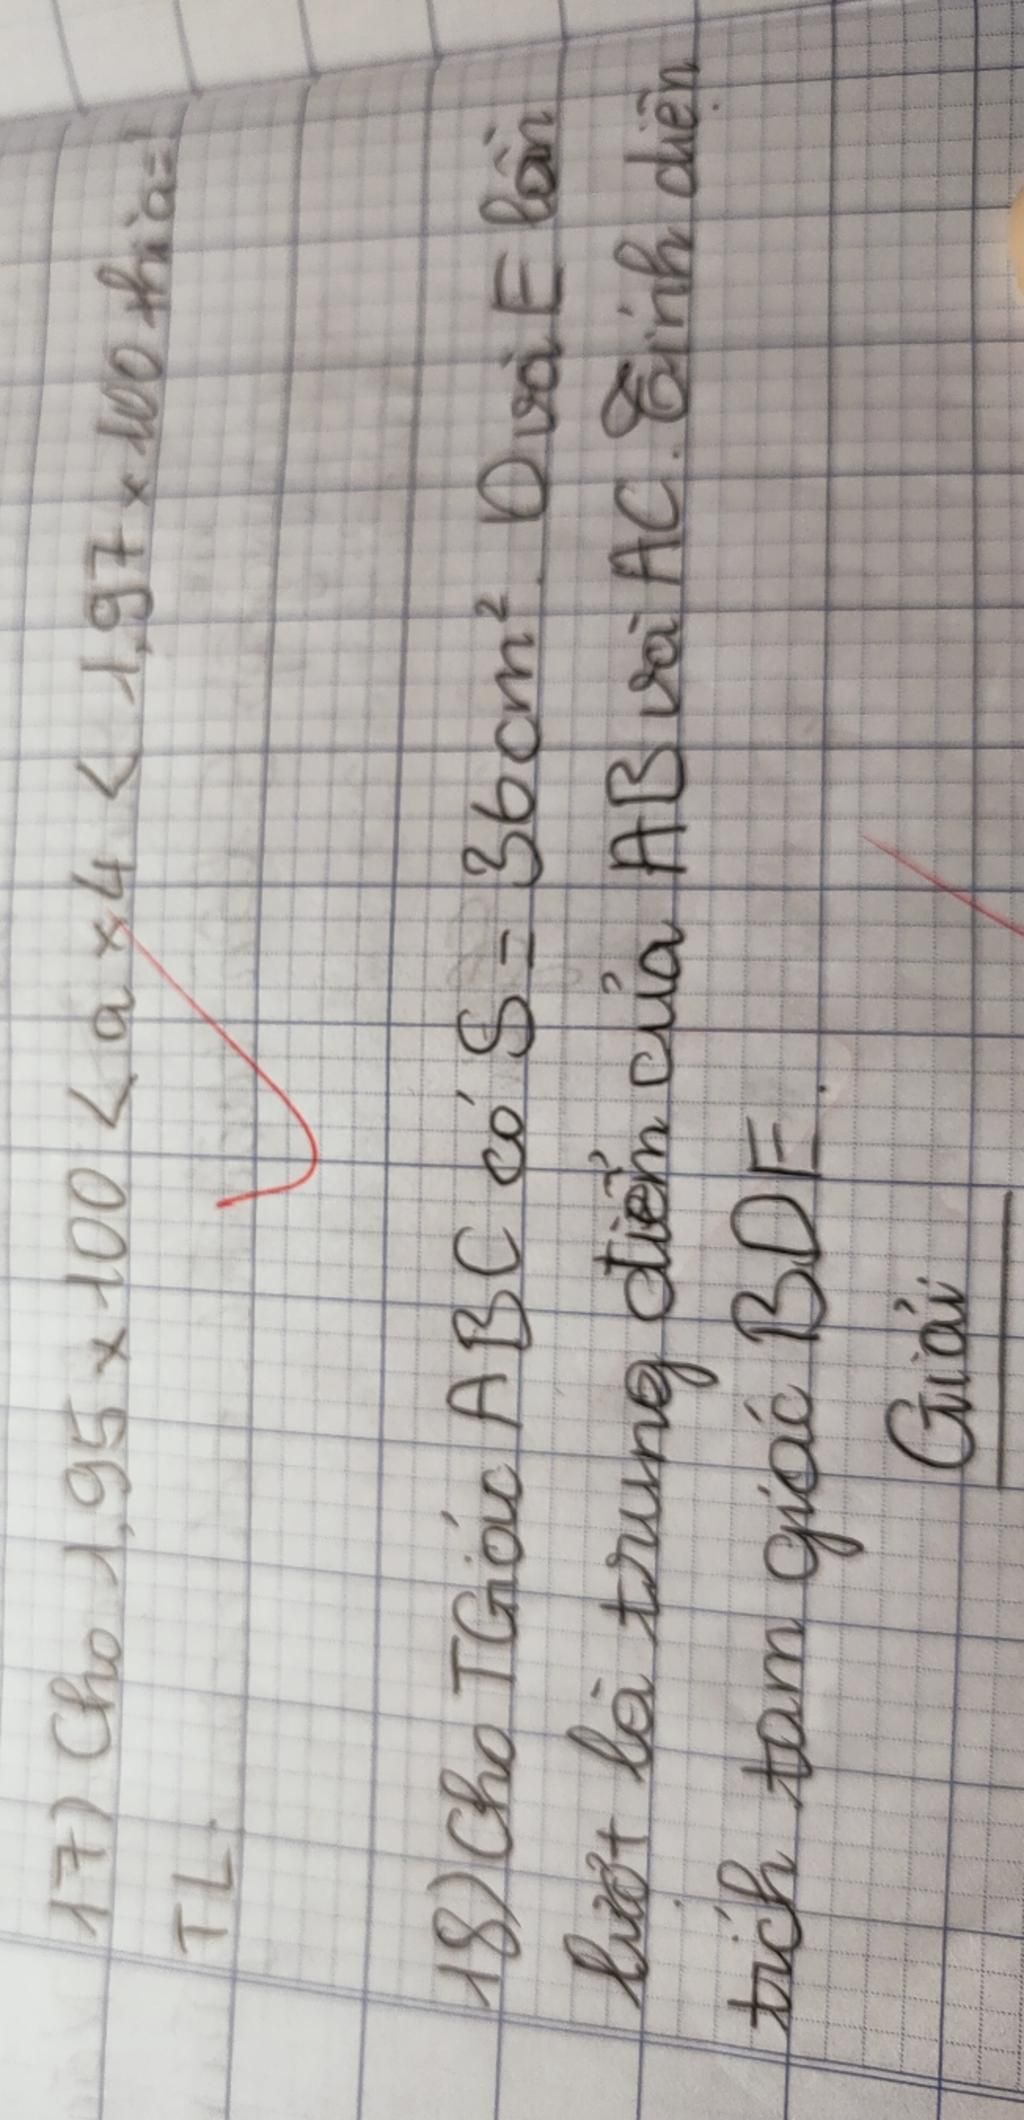 17) Cho 1,95 x 100 < a x 4 < 1,97 x 100 thì a=?
TL.
18) Cho TGiác ABC có S = 36cm². D và E lần
lượt là trung điểm của AB và AC. Tính diện
tích tam giác BDE.
Giải